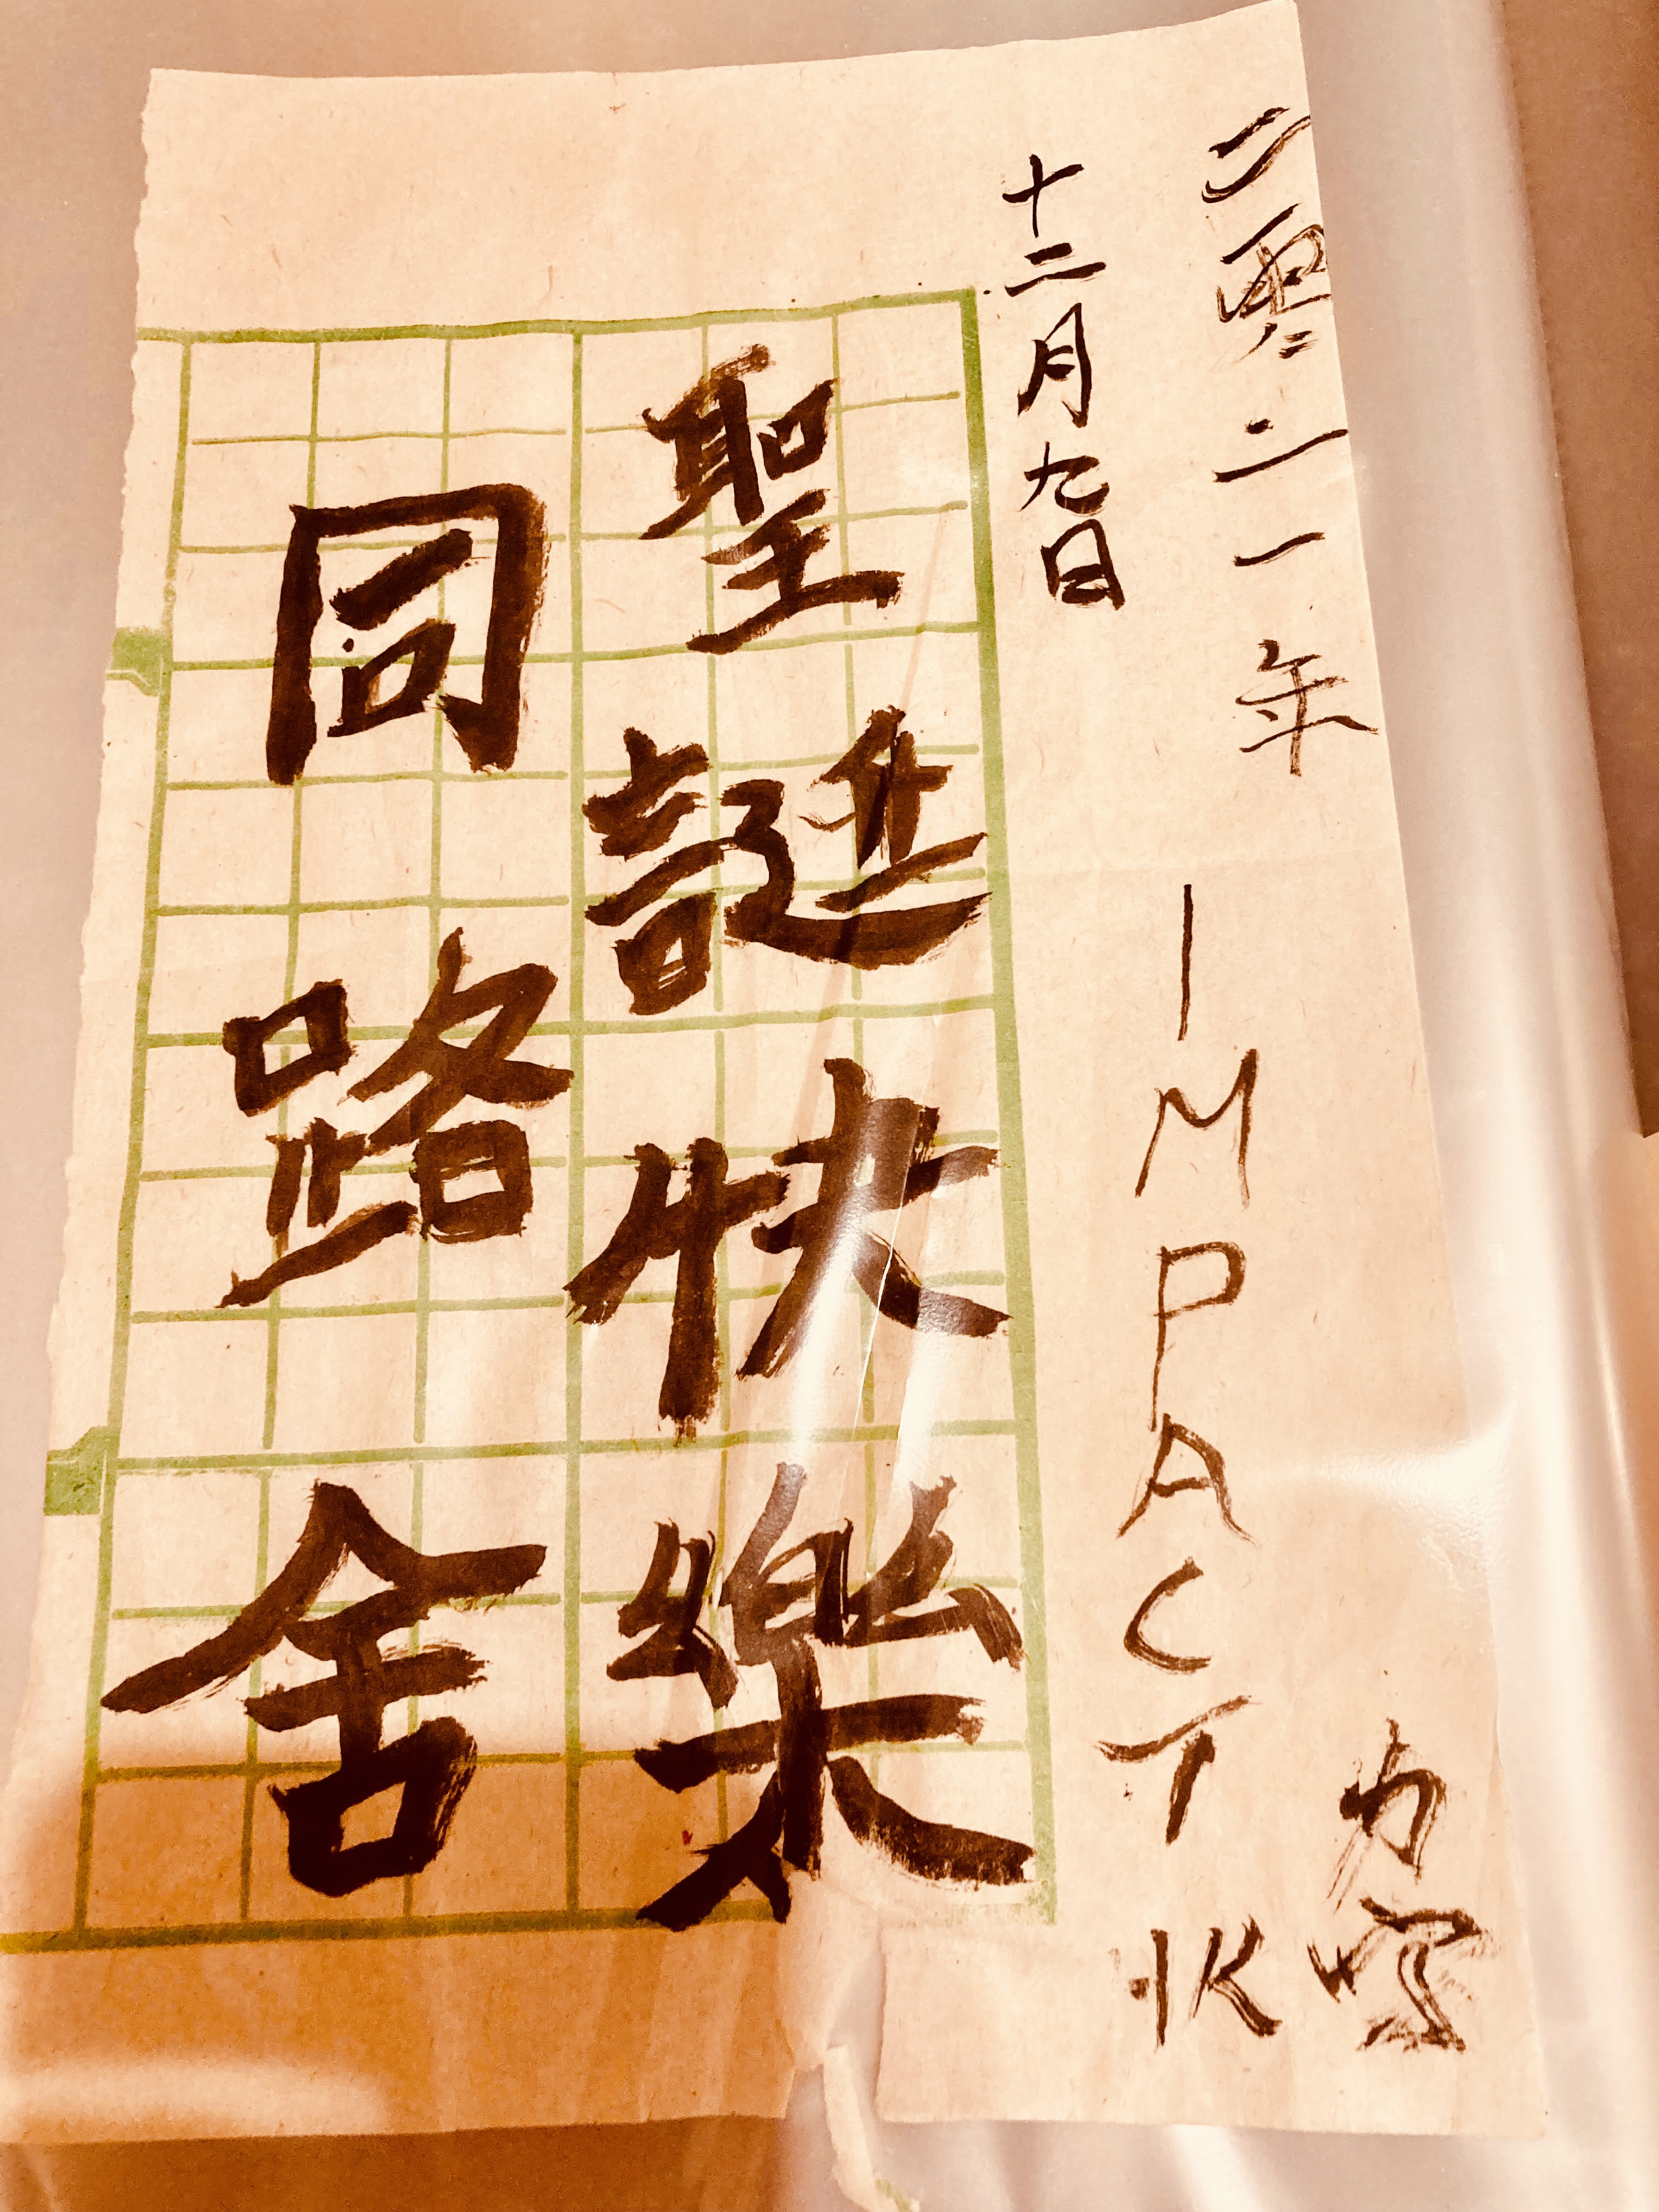 二零二一年
十二月九日
IMPACT
HK
聖誕快樂
同路舍